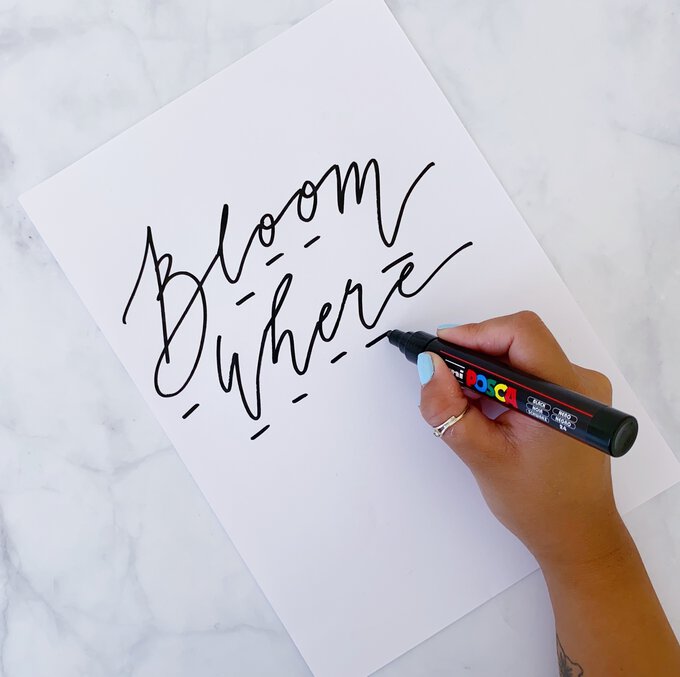 Bloom
Where
uni POSCA
BLACK NERO
NOIR NEGRO